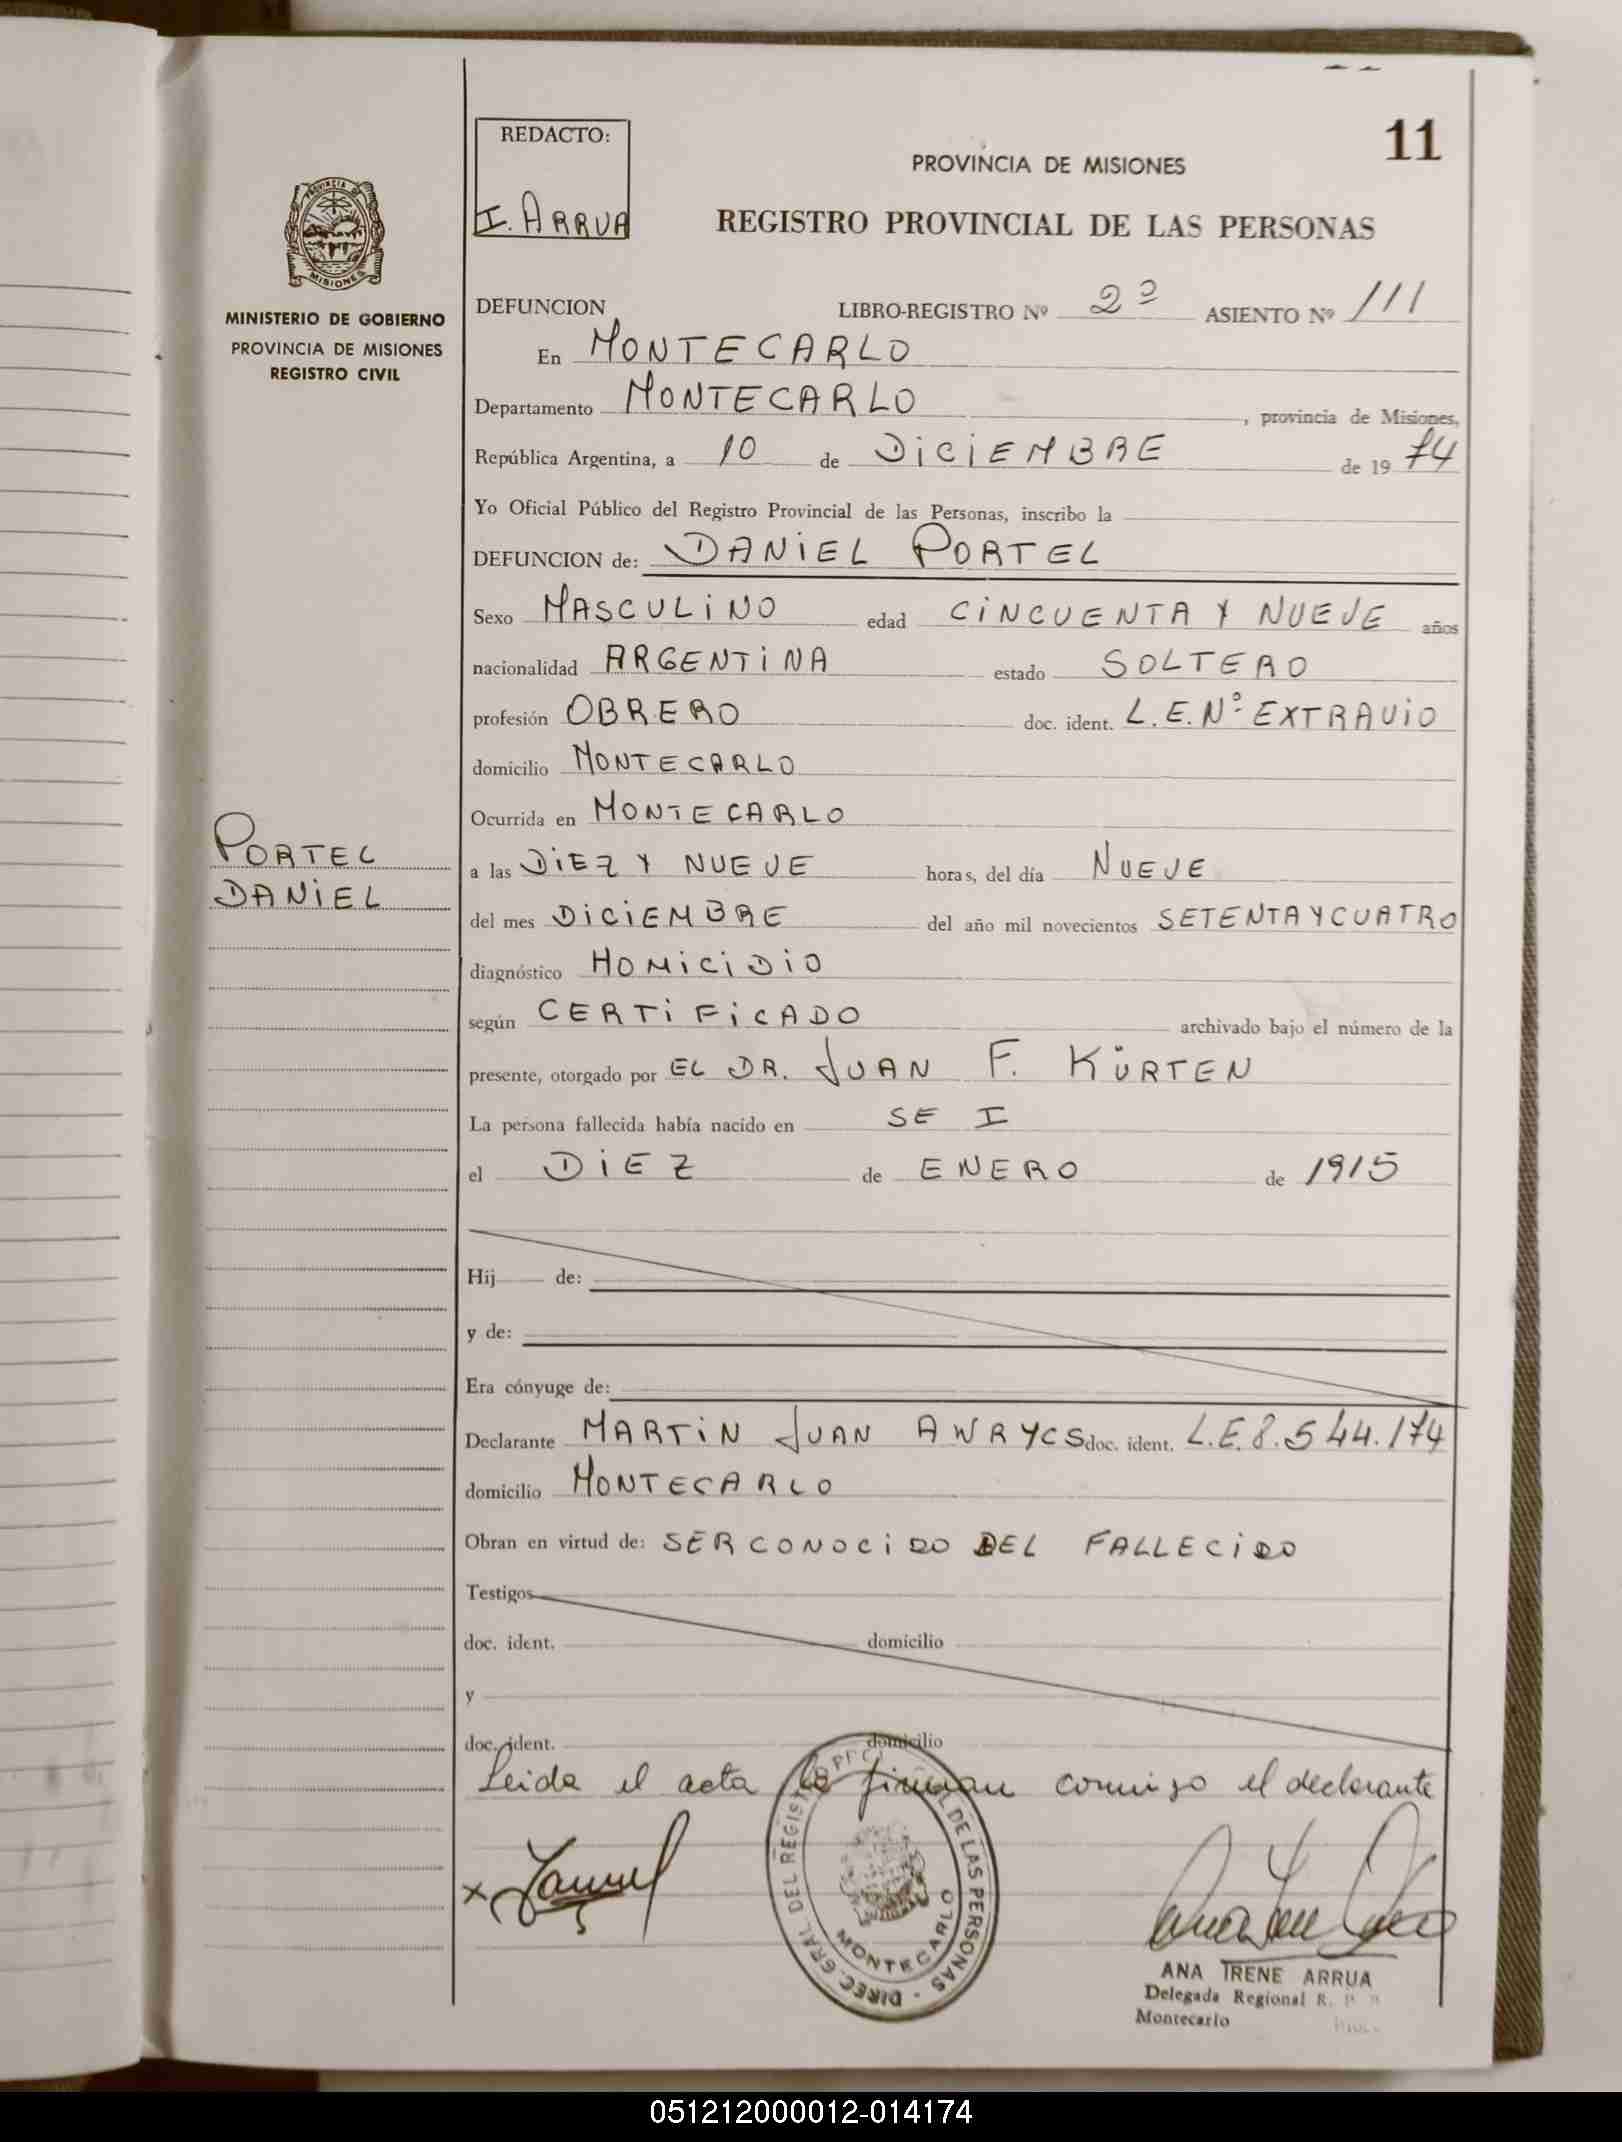 11
REDACTO:
I. ARRUA
PROVINCIA DE MISIONES
REGISTRO PROVINCIAL DE LAS PERSONAS
PROVINCIA DE
MISIONES
MINISTERIO DE GOBIERNO
PROVINCIA DE MISIONES
REGISTRO CIVIL
DEFUNCION LIBRO-REGISTRO Nº 2º ASIENTO Nº 111
En MONTECARLO
Departamento MONTECARLO, provincia de Misiones,
República Argentina, a 10 de DICIEMBRE de 19 74
Yo Oficial Público del Registro Provincial de las Personas, inscribo la
DEFUNCION de: DANIEL PORTEL
Sexo MASCULINO edad CINCUENTA Y NUEVE años
nacionalidad ARGENTINA estado SOLTERO
profesión OBRERO doc. ident. L.E.Nº EXTRAVIO
domicilio MONTECARLO
Ocurrida en MONTECARLO
PORTEL
DANIEL
a las DIEZ Y NUEVE horas, del día NUEVE
del mes DICIEMBRE del año mil novecientos SETENTA Y CUATRO
diagnóstico HOMICIDIO
según CERTIFICADO archivado bajo el número de la
presente, otorgado por EL DR. JUAN F. KÜRTEN
La persona fallecida había nacido en SE I
el DIEZ de ENERO de 1915
Hij de:
y de:
Era cónyuge de:
Declarante MARTIN JUAN AWRYCS doc. ident. L.E. 8.544.174
domicilio MONTECARLO
Obran en virtud de: SER CONOCIDO DEL FALLECIDO
Testigos
doc. ident. domicilio
y
doc. ident. domicilio
Leida el acta la firman comigo el declarante
DIREC. GRAL. DEL REGISTRO DE LAS PERSONAS
MONTECARLO
ANA IRENE ARRUA
Delegada Regional R.
Montecarlo
051212000012-014174